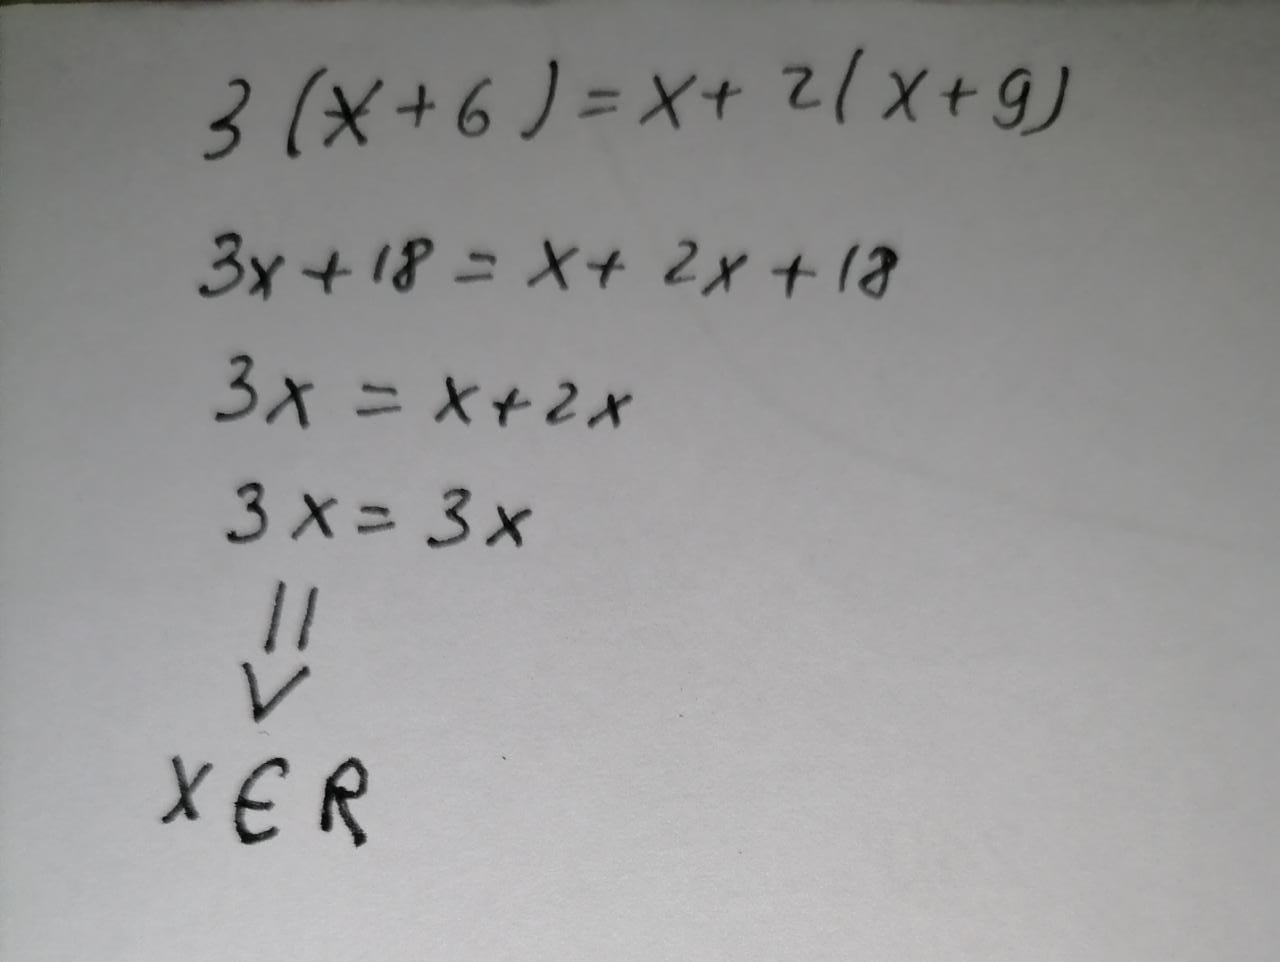 3(x+6)=x+2(x+9)
3x+18=x+2x+18
3x=x+2x
3x=3x
⇓
x∈R